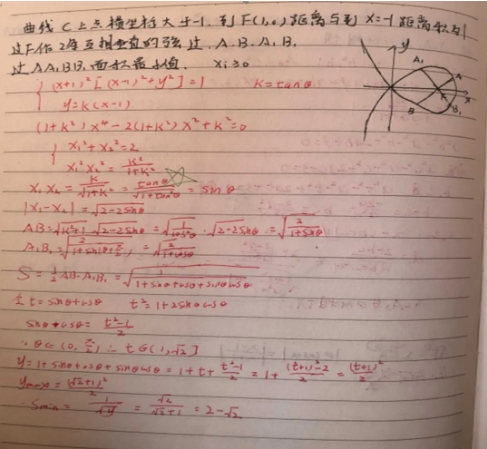 曲线C上点横坐标大于-1,到F(1,0)距离与到x=-1距离积为1
过F作2条互相垂直的弦过.A.B.A₁B₁
过AA₁BB₁面积最小值. xᵢ≥0
{ (x+1)²[(x-1)²+y²]=1 K=tanθ
y=k(x-1)
(1+k²)x⁴-2(1+k²)x²+k²=0
{ x₁²+x₂²=2
x₁²x₂²=k²/(1+k²)
x₁x₂=k/√(1+k²)=tanθ/√(1+tan²θ)=sinθ
|x₁-x₂|=√(2-2sinθ)
AB=√(k²+1)·√(2-2sinθ)=√(1/cos²θ)·√(2-2sinθ)=√(2/(1+sinθ))
A₁B₁=√(2/(1+sin(θ+π/2)))=√(2/(1+cosθ))
S=½AB·A₁B₁=√(1/(1+sinθ+cosθ+sinθcosθ))
令t=sinθ+cosθ t²=1+2sinθcosθ
sinθ*cosθ=(t²-1)/2
∵θ∈(0,π/2)∴t∈(1,√2]
y=1+sinθ+cosθ+sinθcosθ=1+t+(t²-1)/2=1+((t+1)²-2)/2=(t+1)²/2
ymax=(√2+1)²/2
Smin=1/√y=√2/(√2+1)=2-√2
y
A₁
A
F
x
B
B₁